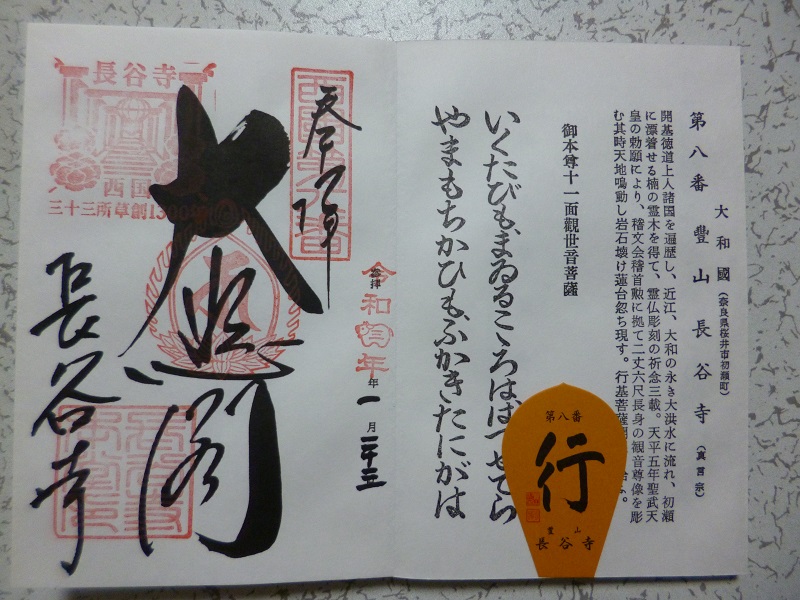 大和國（奈良県桜井市初瀬町）
第八番 豊山 長谷寺（真言宗）
開基徳道上人諸国を遍歴し、近江、大和の永き大洪水に流れ、初瀬
に漂着せる楠の霊木を得て、霊仏彫刻の祈念三載。天平五年聖武天
皇の勅願により、稽文会稽首勲に拠て二丈六尺長身の観音尊像を彫
む其時天地鳴動し岩石壊け蓮台忽ち現す。行基菩薩
御本尊十一面觀世音菩薩
いくたびも、まゐるこゝろははつせでら
やまもちかひも、ふかきたにがは
第八番
行
豊山
長谷寺
奉拝
西国第八番
登拝
令和弐年
年一月二十三
大悲閣
長谷寺
長谷寺
西国
三十三所草創1300年